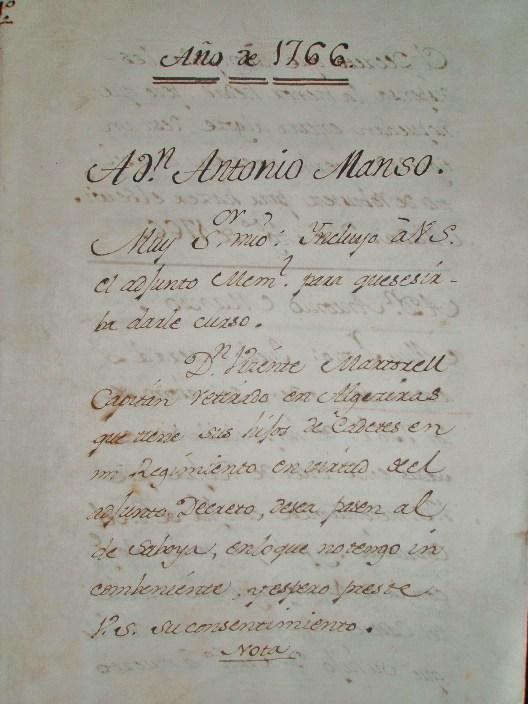 Año de 1766.
A Dn. Antonio Manso.
Muy Sor. mio: Yncluyo â V.S.
el adjunto Meml. para que se sir-
ba darle curso.
Dn. Vizente Martorell
Capitán retirado en Algeziras
que tiene sus hijos de Cadetes en
mi Regimiento en virtud del
adjunto Decreto, desea pasen al
de Saboya, en lo que no tengo in
combeniente, y espero preste
V.S. su consentimiento.
Nota